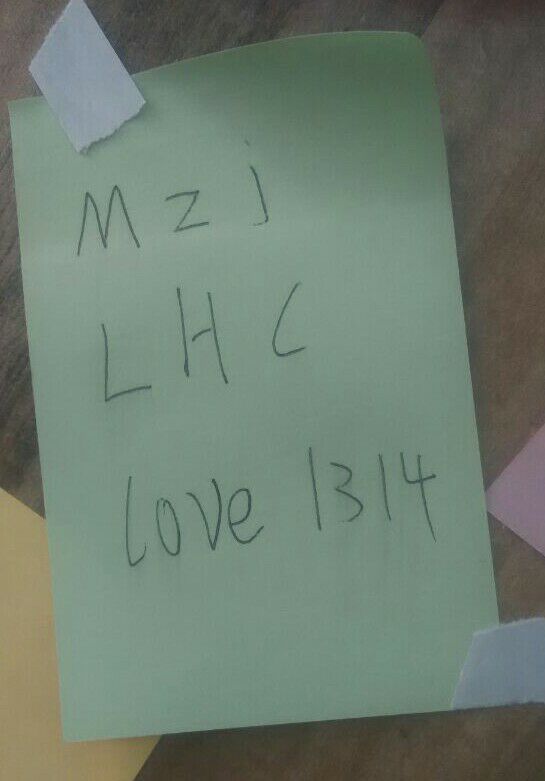 Mzj
LHC
love 1314